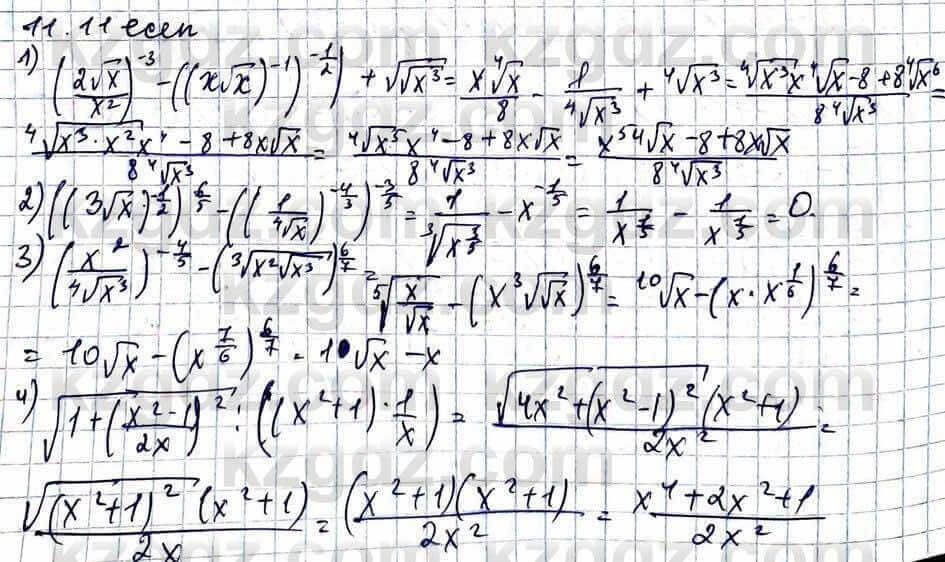 11.11 есеп
1) (2√x/x²)⁻³ - ((x√x)⁻¹)^(-1/2)) + √√x³ = x⁴√x/8 - 1/⁴√x³ + ⁴√x³ = ⁴√x³x⁴√x - 8 + 8⁴√x⁶/8⁴√x³ =
⁴√x³·x²x⁴ - 8 + 8x√x/8⁴√x³ = ⁴√x⁵x⁴ - 8 + 8x√x/8⁴√x³ = x⁵⁴√x - 8 + 8x√x/8⁴√x³
2) ((3√x)^(-1/2))^(6/5) - ((1/⁴√x)^(-4/3))^(-3/5) = 1/³√x^(3/5) - x^(-1/5) = 1/x^(1/5) - 1/x^(1/5) = 0.
3) (x²/⁴√x³)^(-4/5) - (³√x²√x³)^(6/7) = ⁵√x/√x - (x³√√x)^(6/7) = ¹⁰√x - (x·x^(1/6))^(6/7) =
= 10√x - (x^(7/6))^(6/7) = 10√x - x
4) √1+(x²-1/2x)² : ((x²+1)·1/x) = √4x²+(x²-1)²(x²+1)/2x² =
√(x²+1)²(x²+1)/2x = (x²+1)(x²+1)/2x² = x⁴+2x²+1/2x²
kzgdz.com